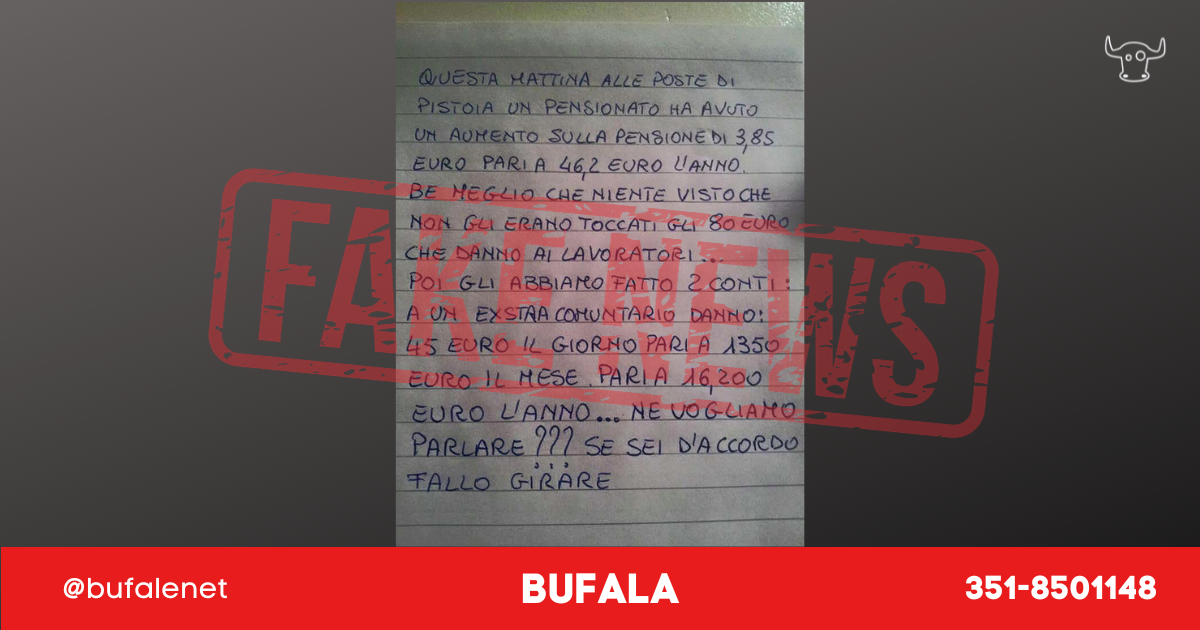 QUESTA MATTINA ALLE POSTE DI
PISTOIA UN PENSIONATO HA AVUTO
UN AUMENTO SULLA PENSIONE DI 3,85
EURO PARI A 46,2 EURO L'ANNO.
BE MEGLIO CHE NIENTE VISTO CHE
NON GLI ERANO TOCCATI GLI 80 EURO
CHE DANNO AI LAVORATORI...
POI GLI ABBIAMO FATTO 2 CONTI:
A UN EXSTRACOMUNTARIO DANNO:
45 EURO IL GIORNO PARI A 1350
EURO IL MESE. PARI A 16,200
EURO L'ANNO... NE VOGLIAMO
PARLARE ??? SE SEI D'ACCORDO
FALLO GIRARE
FAKE NEWS
@bufalenet
BUFALA
351-8501148